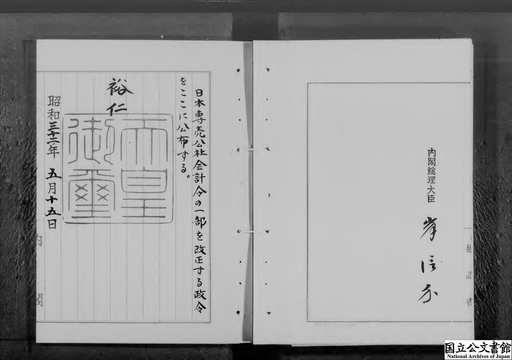 内閣総理大臣 岸信介
日本専売公社会計令の一部を改正する政令
をここに公布する。
裕仁
天皇
御璽
昭和三十二年五月十五日
内閣
国立公文書館
National Archives of Japan